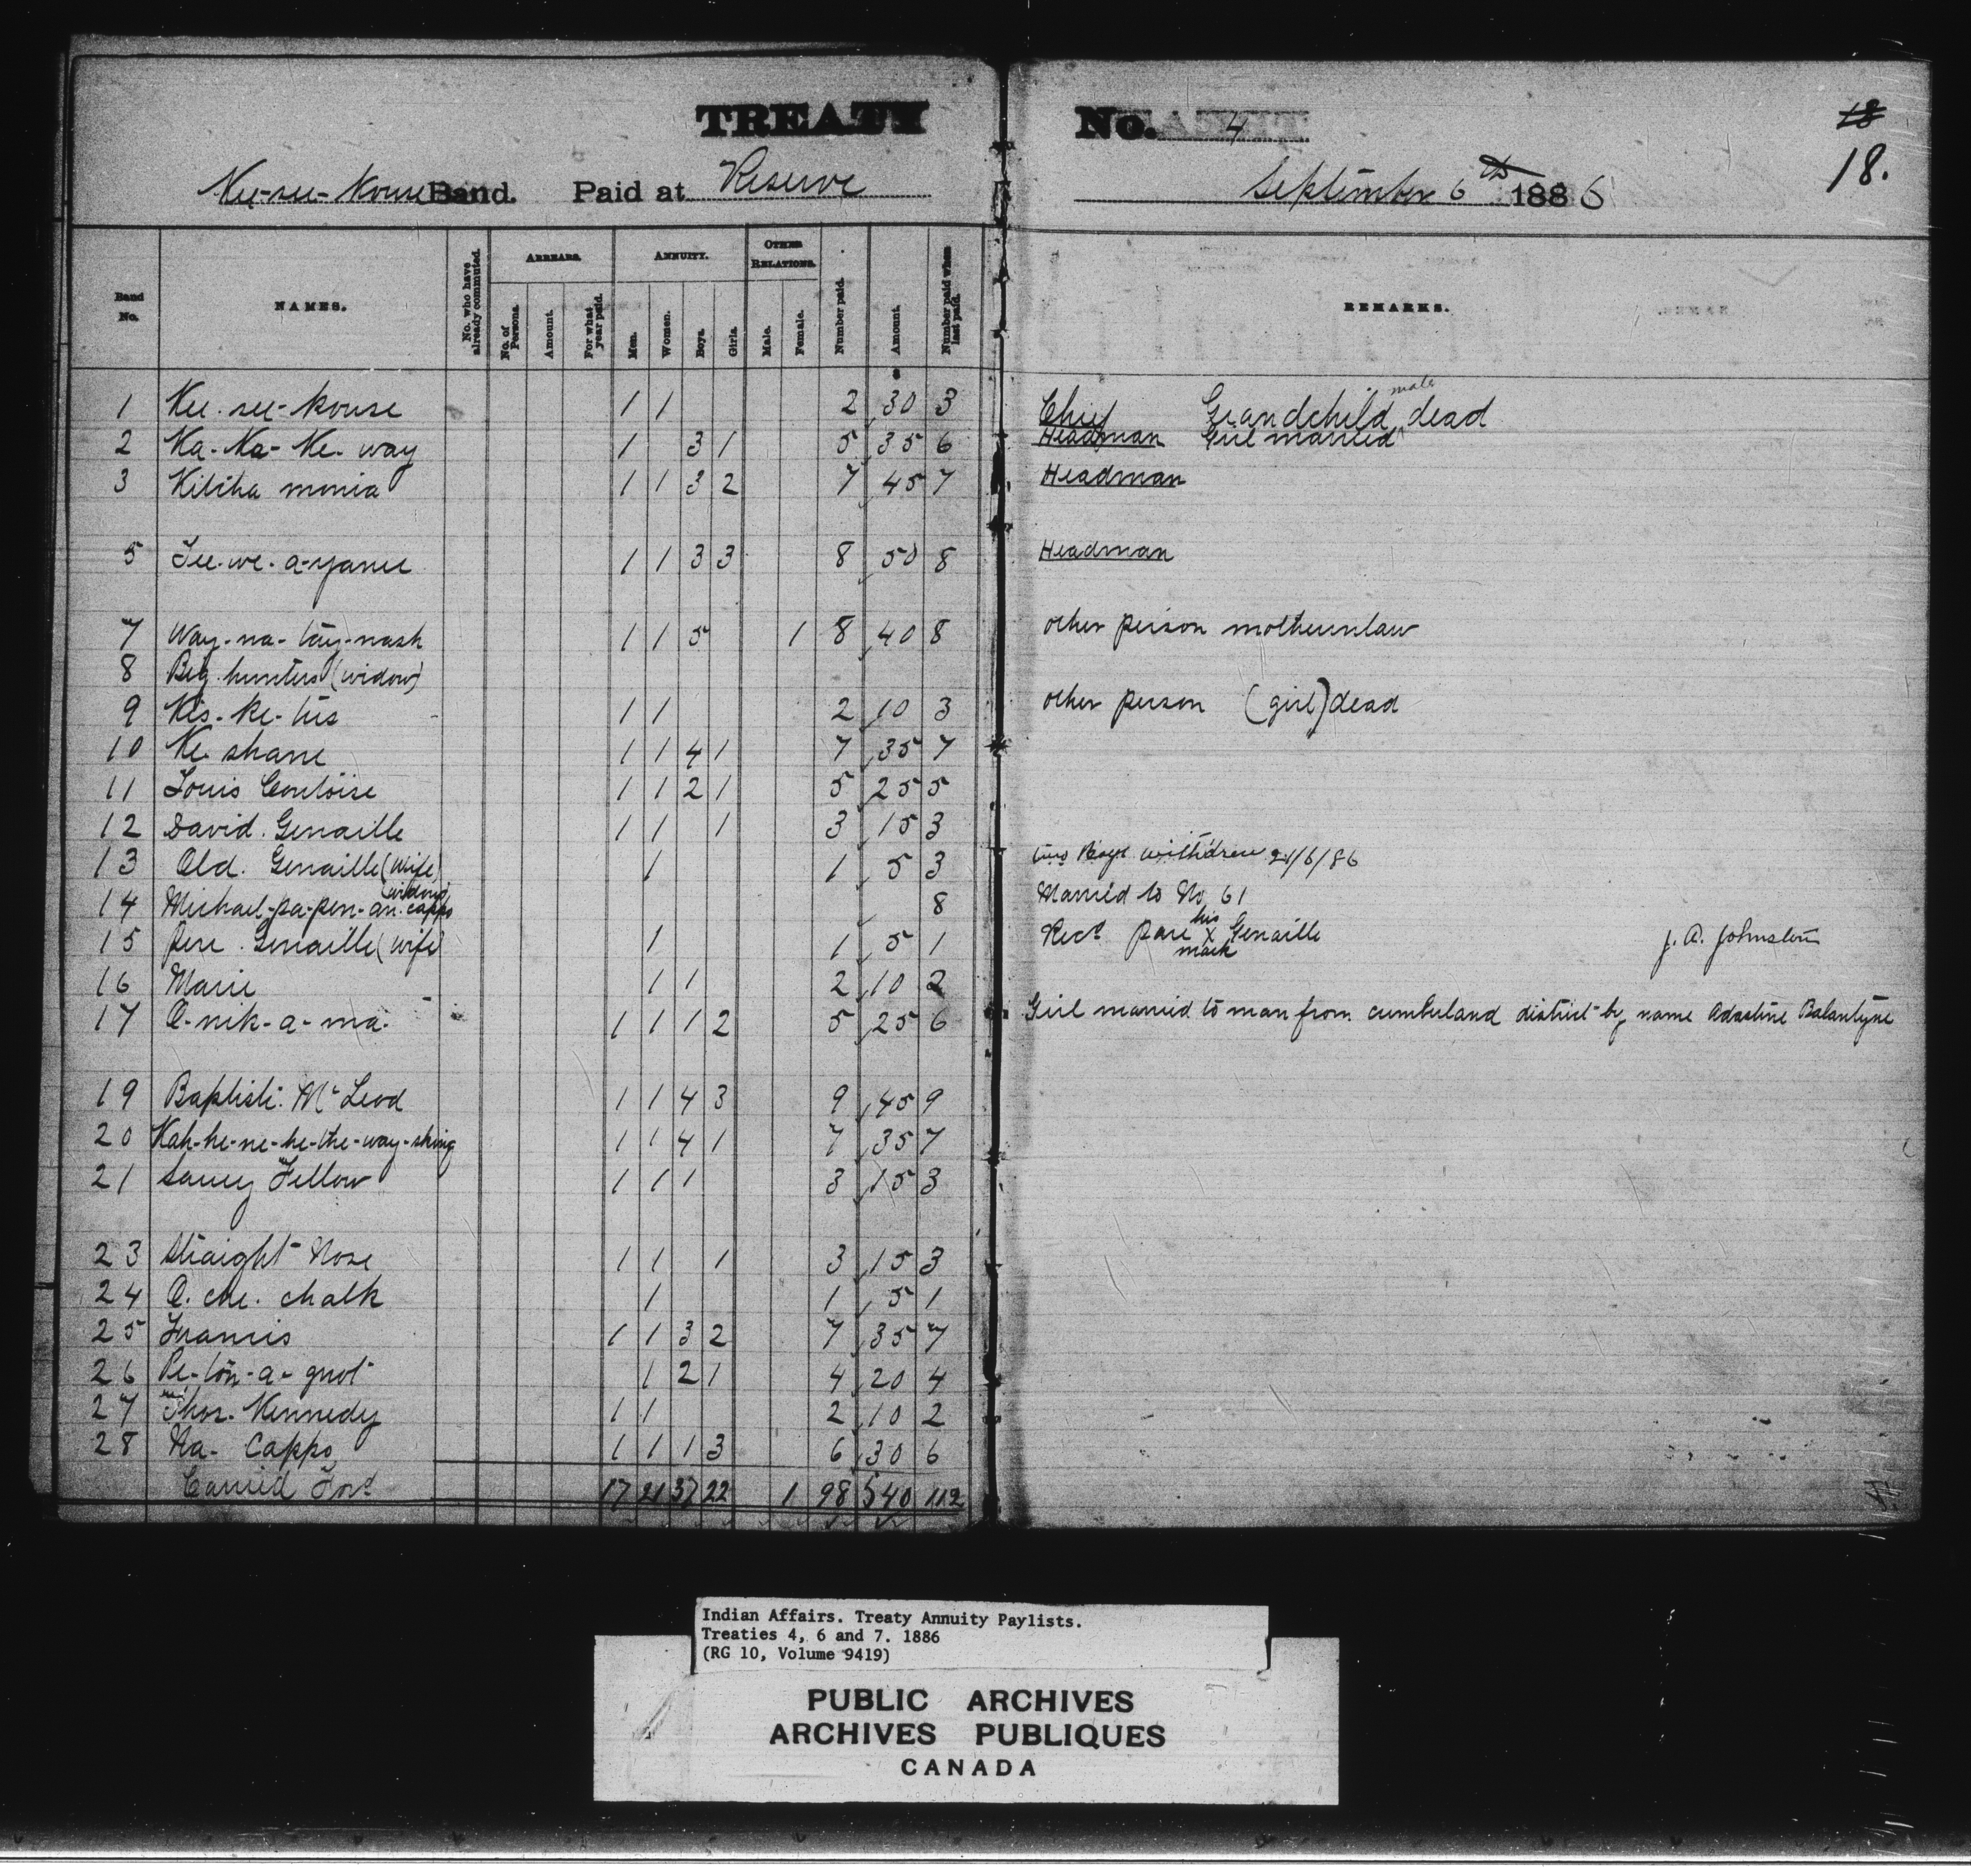 TREATY No. 4
18
18.
Kee-see-kouse Band. Paid at Reserve September 6th 1886
Band No. NAMES. No. who have already commuted. ARREARS. No. of Persons. Amount. For what year paid. ANNUITY. Men. Women. Boys. Girls. OTHER RELATIONS. Male. Female. Number paid. Amount. Number paid when last paid. REMARKS.
1 Kee-see-kouse 1 1 2 30 3 Chief Grandchild male dead
2 Ka-Ka-Ke-way 1 3 1 5 35 6 Headman Girl married
3 Kitiha monia 1 1 3 2 7 45 7 Headman
5 1 1 3 3 8 50 8 Headman
7 Way-na-tay-nash 1 1 5 1 8 40 8 other person motherinlaw
8 Big hunters (widow)
9 Kis-ke-tus 1 1 2 10 3 other person (girl) dead
10 Ke shane 1 1 4 1 7 35 7
11 Louis Contoise 1 1 2 1 5 25 5
12 David. Genaille 1 1 1 3 15 3
13 Old. Genaille (Wife) 1 1 5 3 two Boys withdrew 21/6/86
14 Michael-pa-pen-an. capps (widow) 8 Married to No 61
15 Pere. Genaille (wife) 1 1 5 1 Recd pare his X mark Genaille J. A. Johnston
16 Marie 1 1 2 10 2
17 O-nik-a-ma. 1 1 1 2 5 25 6 Girl married to man from cumberland district by name Balantyne
19 Baptiste. McLeod 1 1 4 3 9 45 9
20 Kah-he-ne-he-the-way-shing 1 1 4 1 7 35 7
21 Saucy Fellow 1 1 1 3 15 3
23 Straight Nose 1 1 1 3 15 3
24 O. che. chalk 1 1 5 1
25 Francis 1 1 3 2 7 35 7
26 Pe-ton-a-quot 1 2 1 4 20 4
27 Thos. Kennedy 1 1 2 10 2
28 Na-Capps 1 1 1 3 6 30 6
Carried Ford 17 21 37 22 1 98 540 112
Indian Affairs. Treaty Annuity Paylists.
Treaties 4, 6 and 7. 1886
(RG 10, Volume 9419)
PUBLIC ARCHIVES
ARCHIVES PUBLIQUES
CANADA